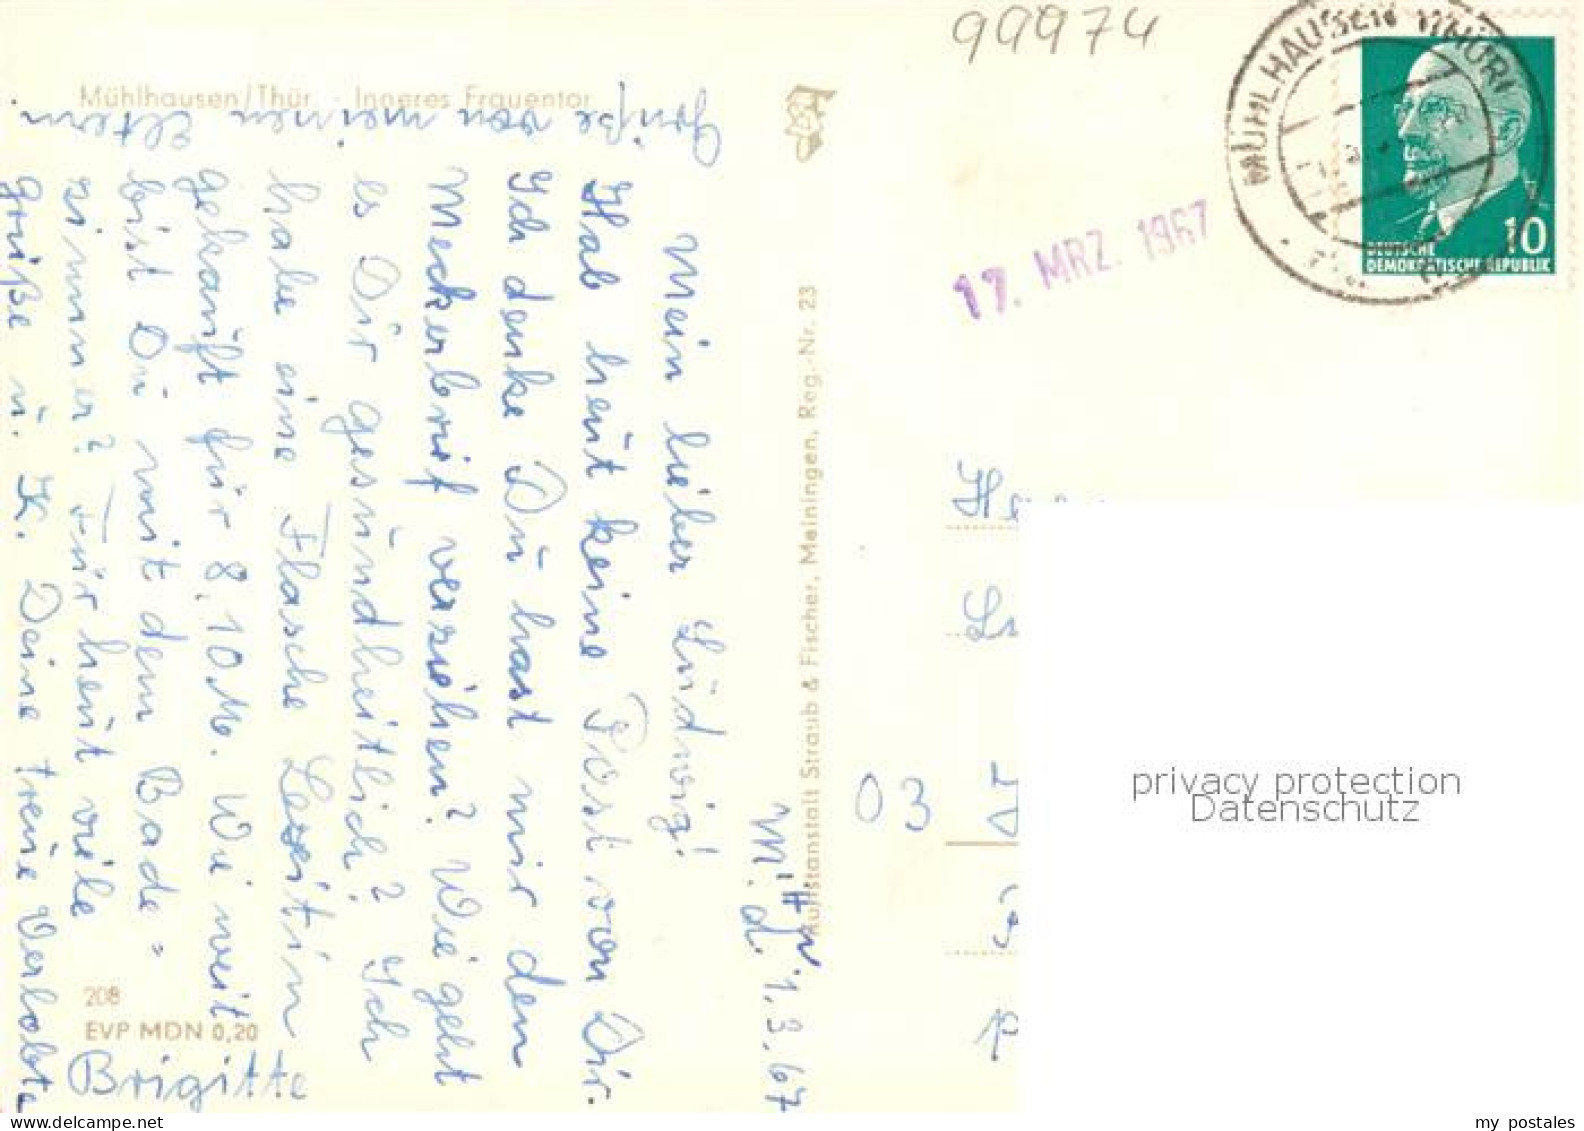 99974
MÜHLHAUSEN THÜR
10
DEUTSCHE
DEMOKRATISCHE REPUBLIK
17. MRZ. 1967
Mühlhausen/Thür. - Inneres Frauentor
M. d. 1.3.67
Mein lieber Ludwig!
Hab heut keine Post von Dir.
Ich denke Du hast mir den
Meckerbrief verziehen? Wie geht
es Dir gesundheitlich? Ich
habe eine Flasche Lezitin
gekauft für 8,10 M. Wie weit
bist Du mit dem Bade=
zimmer? Für heut viele
Grüße u. K. Deine treue Verlobte
Brigitte
Grüße von meinen Eltern
Kunstanstalt Straub & Fischer, Meiningen, Reg.-Nr. 23
208
EVP MDN 0,20
03
privacy protection
Datenschutz
my postales
delcampe.net